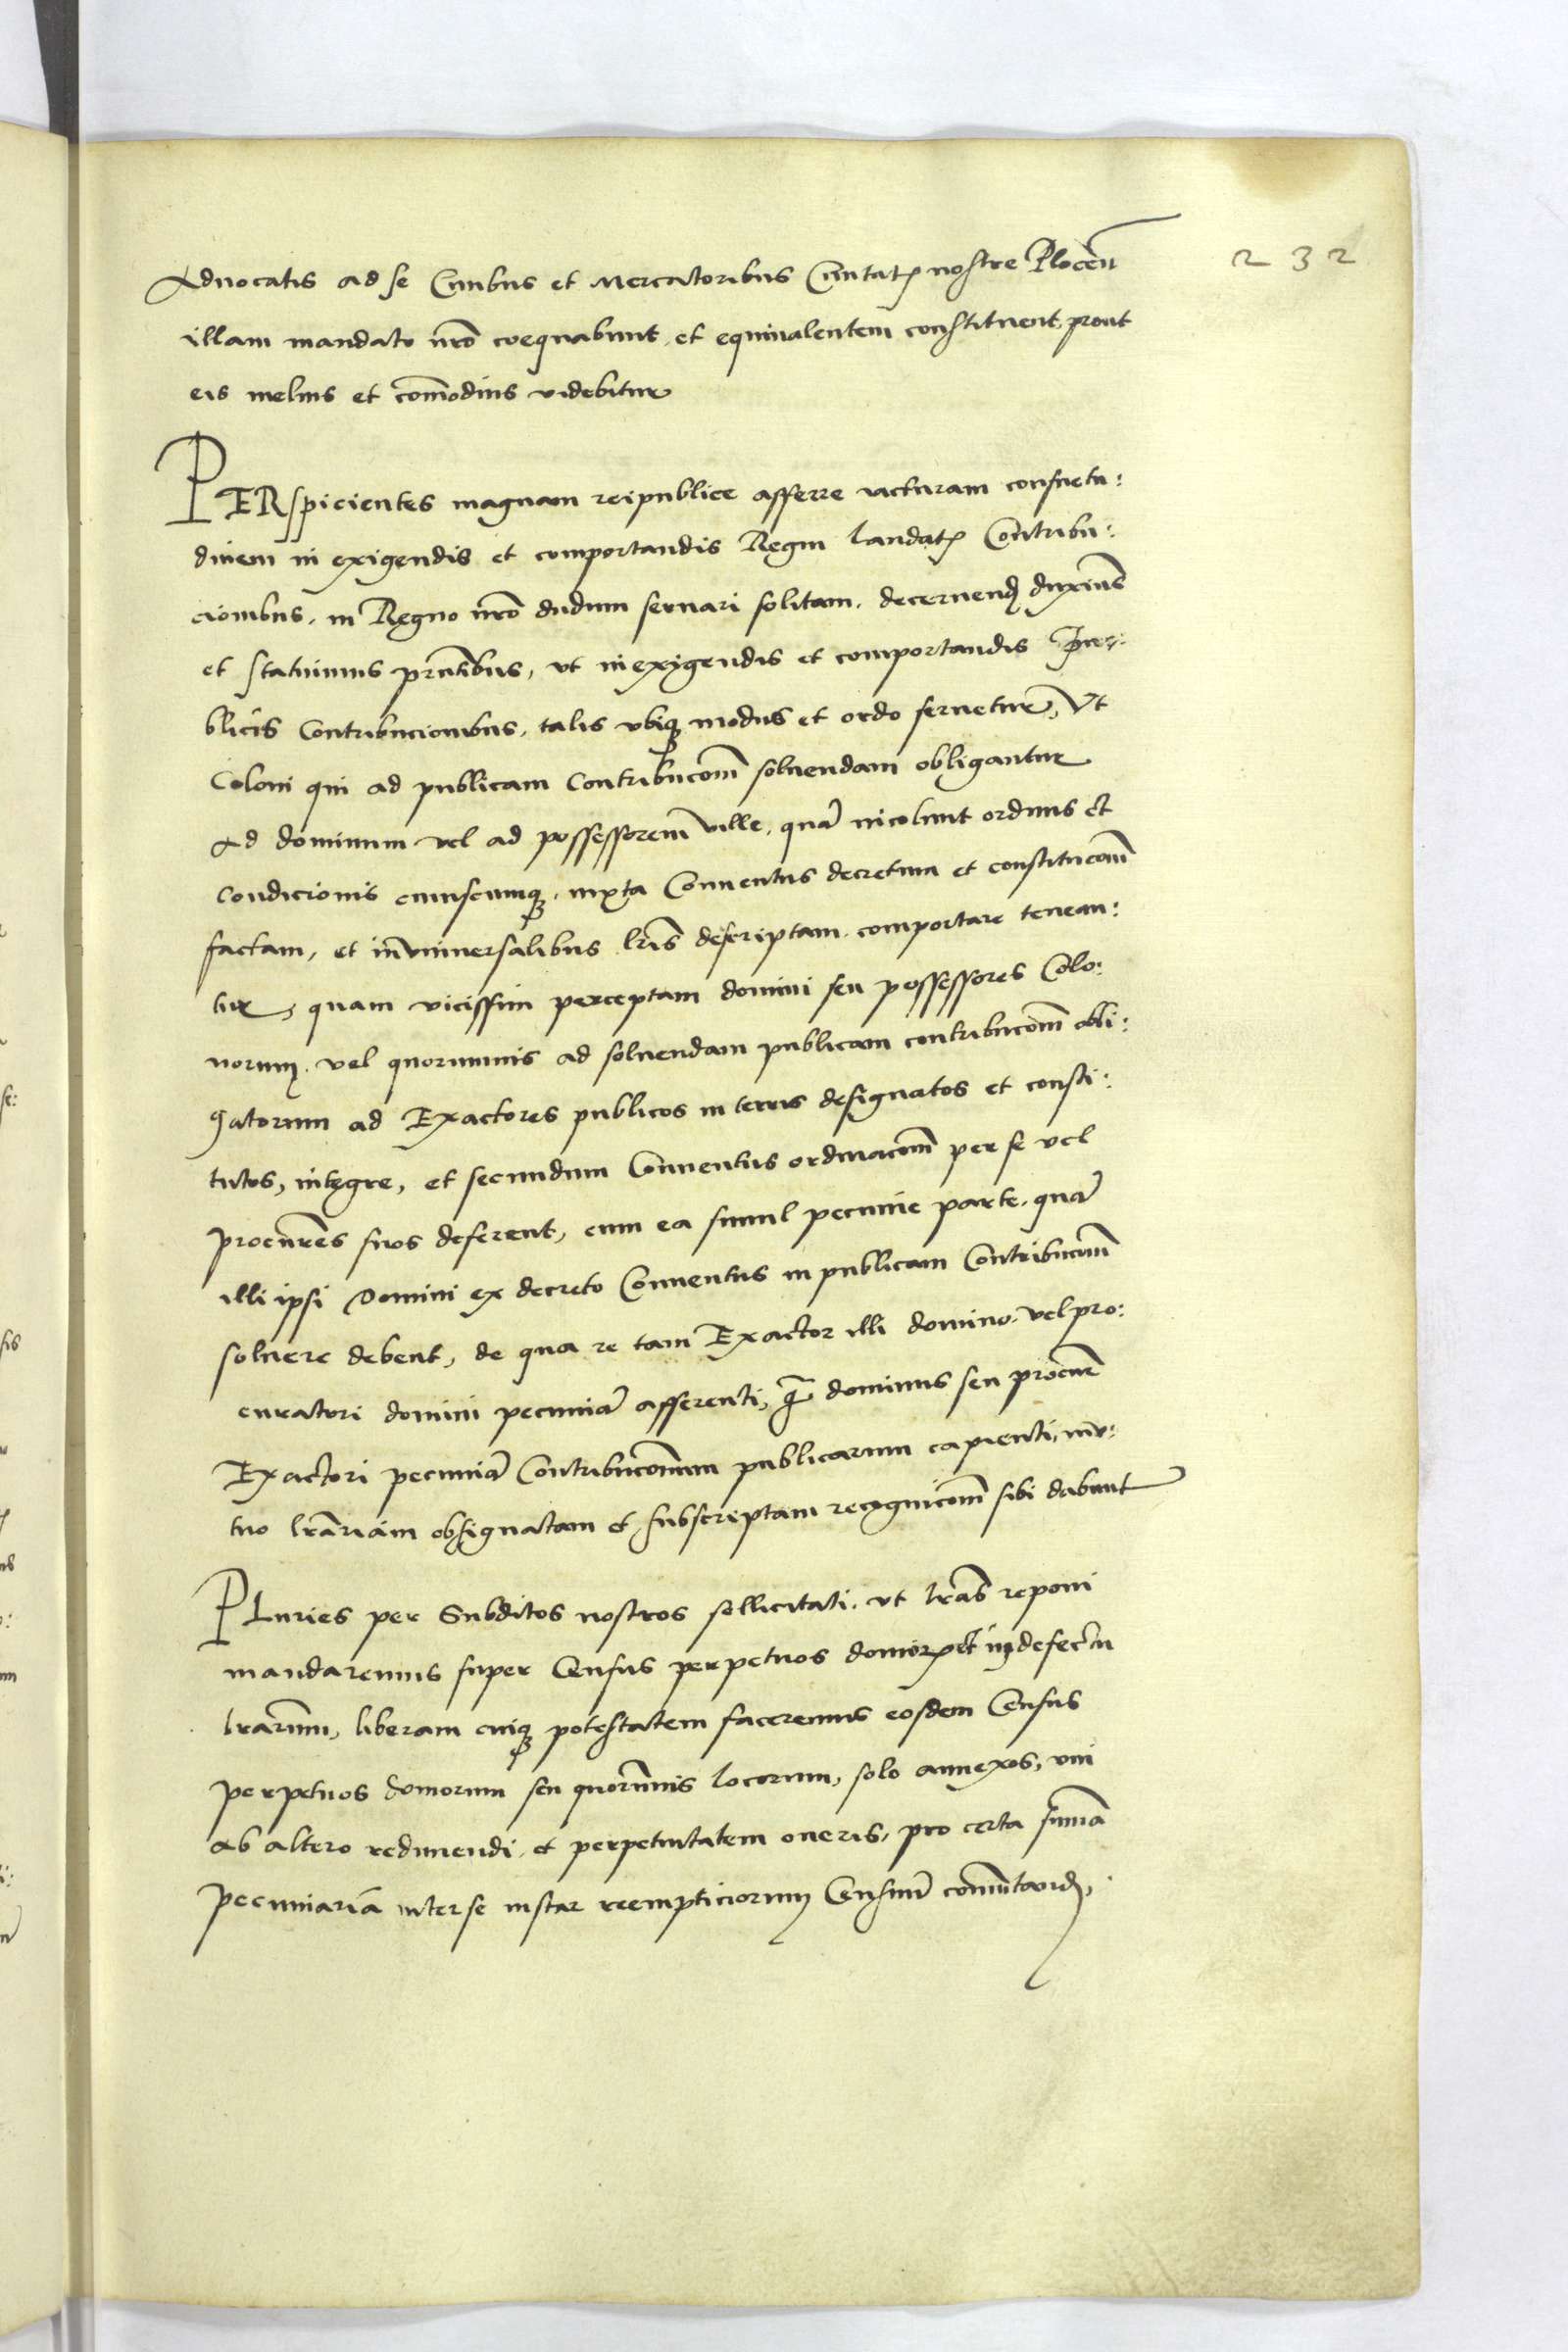 232
Aduocatis ad se Ciuibus et Mercatoribus Ciuitatis nostre Plocen
illam mandato nro coequabunt, et equiualentem constituent, prout
eis melius et comodius videbitur
PERspicientes magnam reipublice afferre iacturam consuetu:
dinem in exigendis et comportandis Regni laudatis Contribu:
cionibus, in Regno nro dudum seruari solitam, decernend duxius
et statuimus prntibus, vt in exigendis et comportandis
blicis Contribucionibus, talis vbiq modus et ordo seruetur, Vt
Coloni qui ad publicam Contribucom soluendam obligantur
Ad dominum vel ad possessorem ville, qua incolunt ordinis et
Condicionis cuiuscunq, iuxta Conuentus decretum et constitucom
factam, et in vniuersalibus lris descriptam, comportare tenean:
tur, quam vicissim perceptam domini seu possessores Colo:
norum, vel quorumuis ad soluendam publicam contribucom obli:
gatorum ad Exactores publicos in terris designatos et consti:
tutos, integre, et secundum Conuentus ordinacom per se vel
procures suos deferent, cum ea simul pecunie parte, qua
illi ipsi Domini ex decreto Conuentus in publicam Contribucom
soluere debent, de qua re tam Exactor illi domino, vel pro:
curatori domini pecunia afferenti, q dominus seu procur
Exactori pecunia Contribucomum publicarum capienti, mu:
tuo lrariam obsignatam et subscriptam recognicom sibi dabunt
PLuries per Subditos nostros sollicitati, vt lras reponi
mandaremus super Census perpetuos domor, et in defectu
lrarum, liberam cuiq potestatem faceremus eosdem Census
perpetuos domorum seu quorumuis locorum, solo annexos, vni
ab altero redimendi, et perpetuitatem oneris, pro certa suma
pecuniaria inter se instar reempticiorum Censuu comutand,